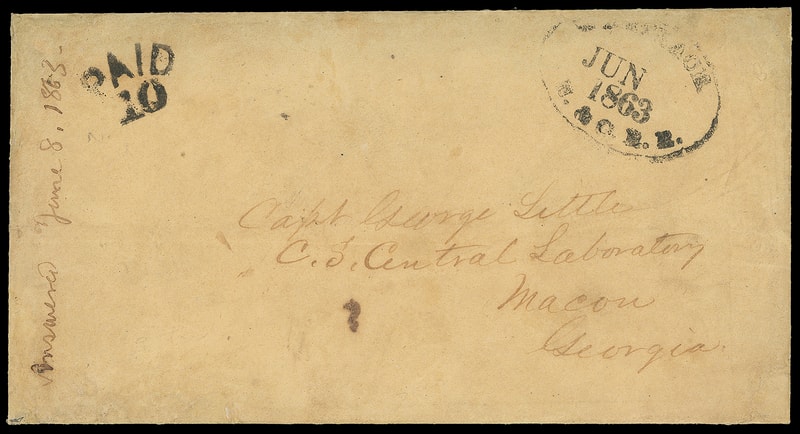 PAID
10
JUN
1863
& C. R. R.
Capt George Little
C. S. Central Laboratory
Macon
Georgia
Answered June 8, 1863